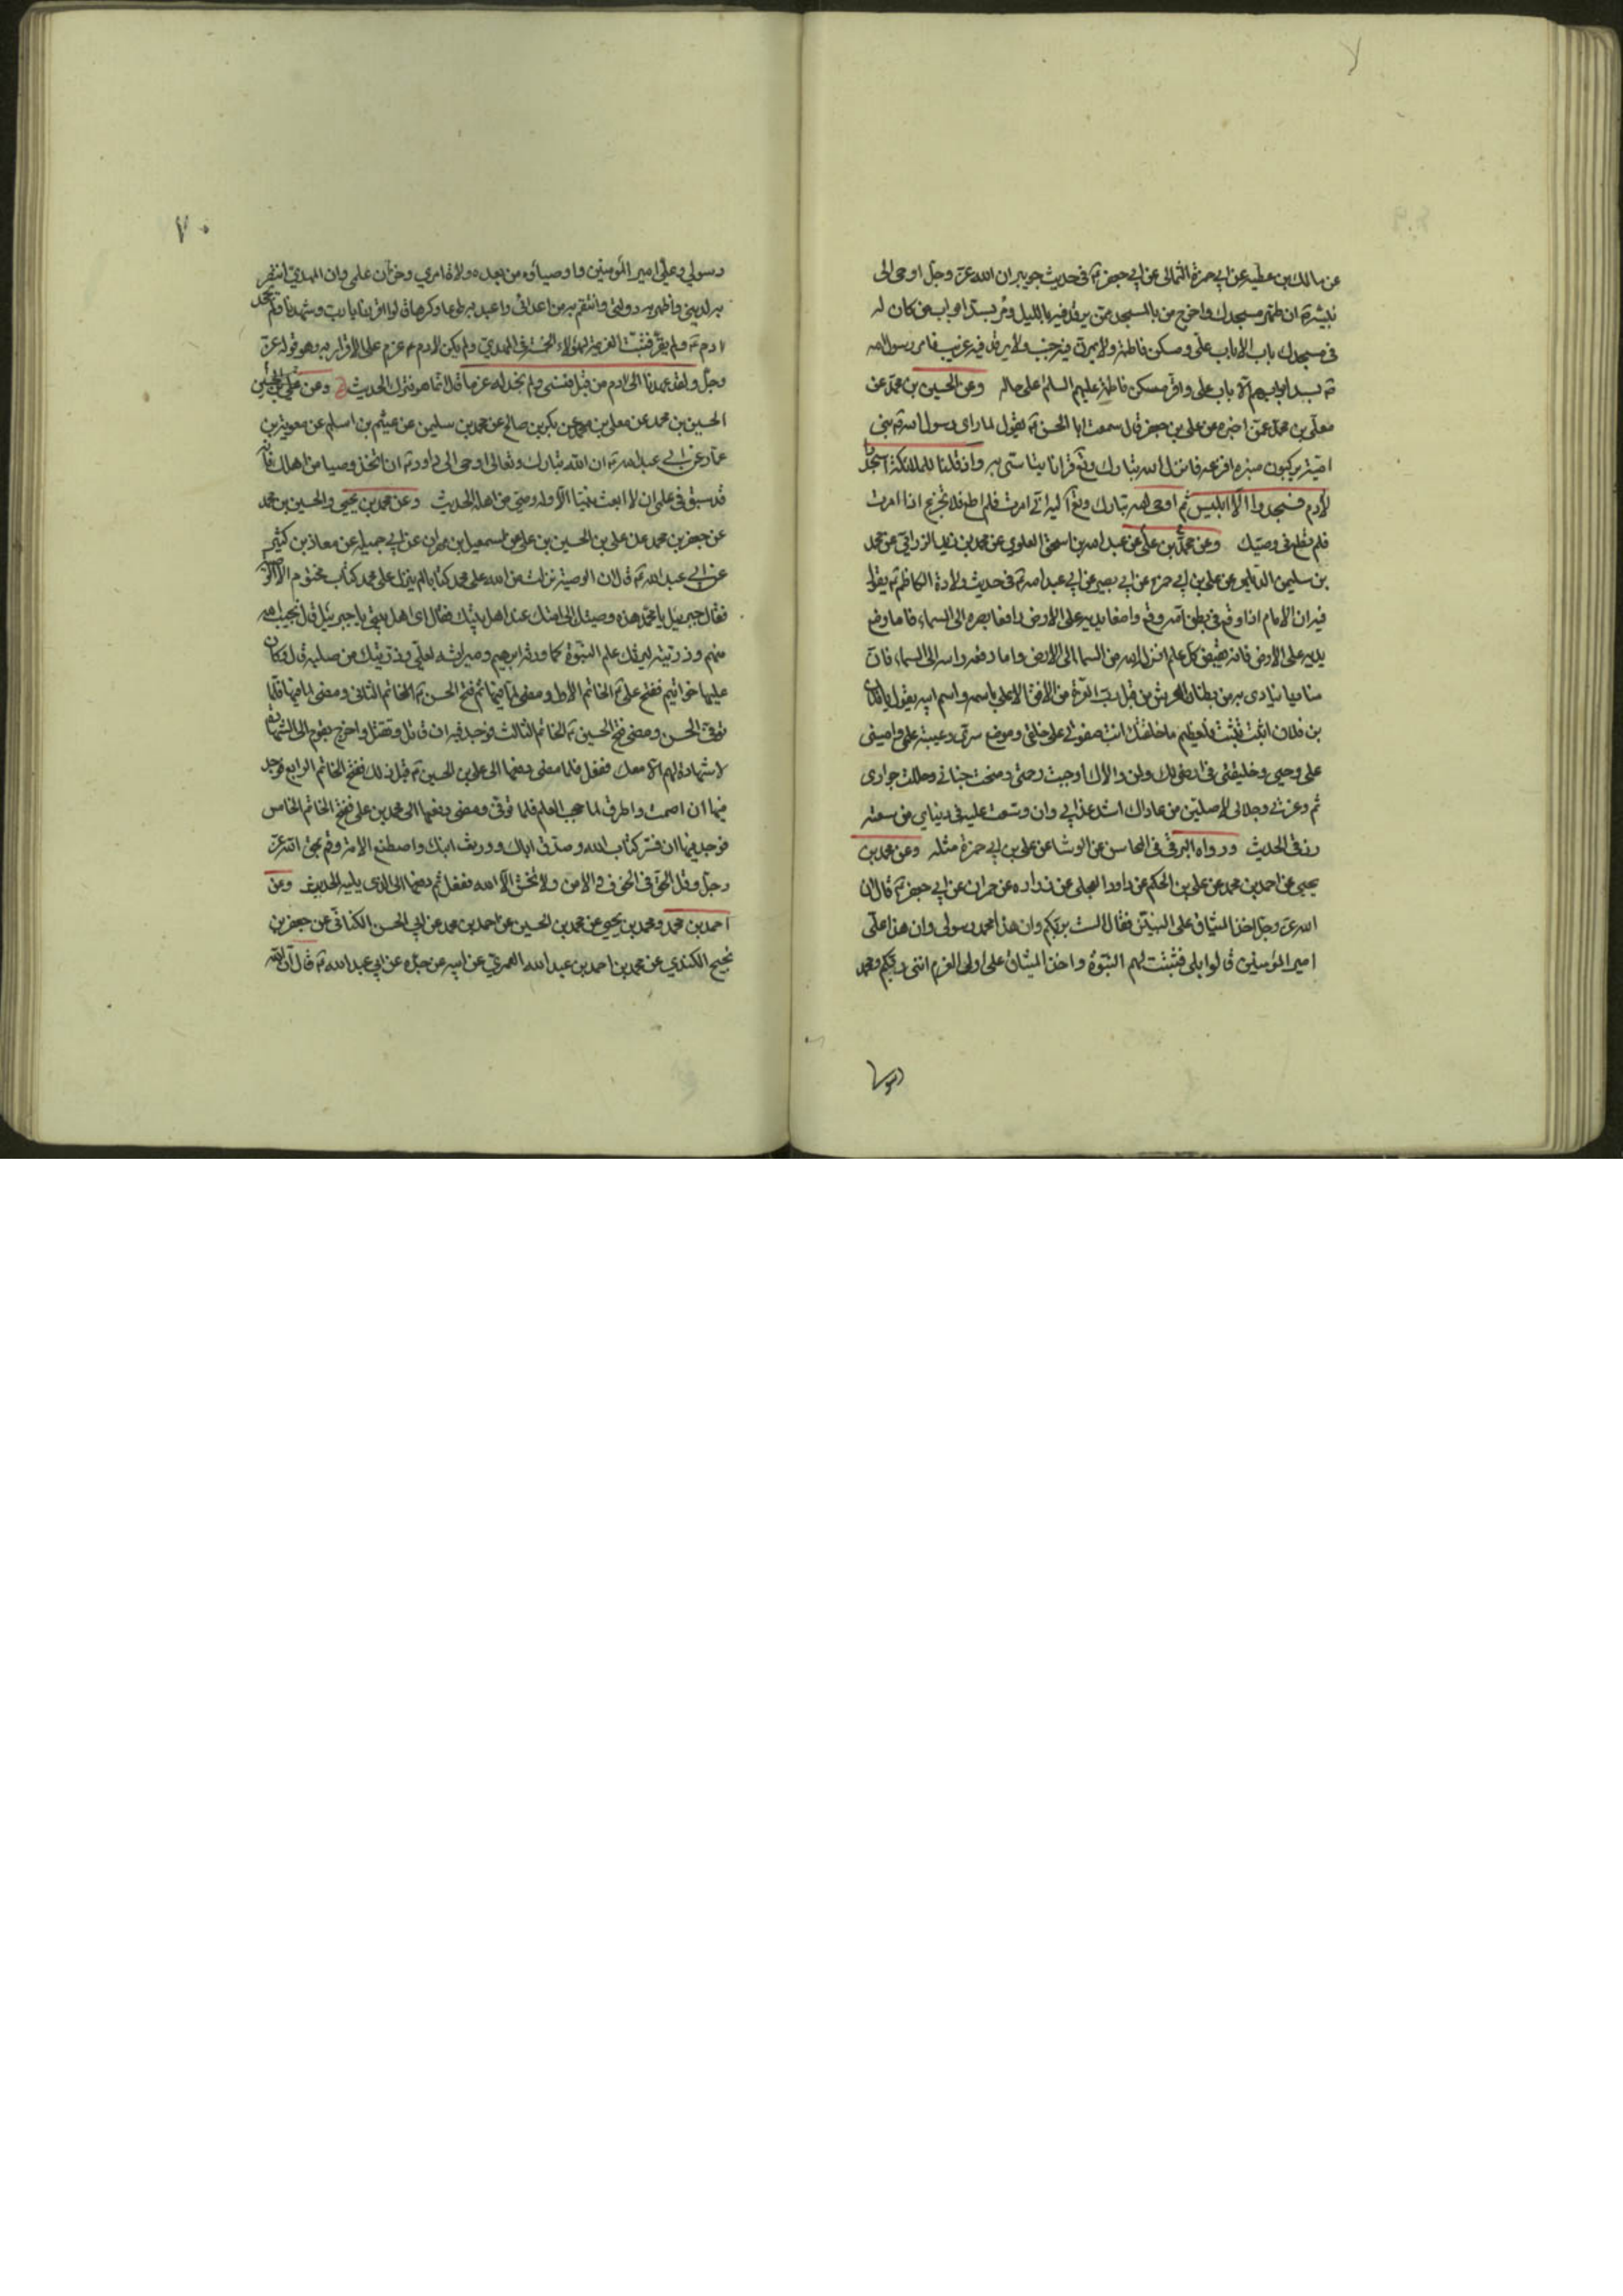 عن مالك بن عطيه عن ابي حمزة الثمالى عن ابي جعفر ع فى حديث جويبر ان الله عز وجل اوحى الى
نبيه ص ان طهر مسجدك واخرج من المسجد من يرقد فيه بالليل ومر بسد ابواب من كان له
فى مسجدك باب الا باب على ومسكن فاطمة ولا يمرن فيه جنب ولا يرقد فيه غريب فامر رسول الله
ص بسد ابوابهم الا باب على واقر مسكن فاطمة عليهم السلم على حاله وعن الحسين بن محمد عن
معلى بن محمد عمن اخبره عن على بن جعفر قال سمعت ابا الحسن ع يقول لما راى رسول الله ص بنى
امية يركبون منبره افزعه فانزل الله تبارك وتع قرانا يتاسى به واذ قلنا للملئكة اسجدوا
لادم فسجدوا الا ابليس ثم اوحى الله تبارك وتع اليه انى امرت فلم اطع فلا تجزع اذا امرت
فلم تطع فى وصيك وعن محمد بن على عن عبد الله بن اسحق العلوى عن محمد بن زيد الرزامى عن محمد
بن سليمن الديلمى عن على بن ابي حمزه عن ابي بصير عن ابي عبد الله ع فى حديث ولادة الكاظم ع يقول
فيه ان الامام اذا وقع فى بطن امه وقع واضعا يديه على الارض رافعا بصره الى السماء فاما وضع
يديه على الارض فانه يقبض كل علم انزل الله من السما الى الارض واما رفعه راسه الى السماء فان
مناديا ينادى به من بطنان العرش من قبل رب العزة من الافق الاعلى باسمه واسم ابيه يقول يا فلان
بن فلان اثبت تثبت فلعظيم ما خلقتك انت صفوتى على خلقى وموضع سرى وعيبة علمى وامينى
على وحيى وخليفتى فى ارضى لك ولمن والاك اوجبت رحمتى ومنحت جنانى وحللت جوارى
ثم وعزتى وجلالى لاصلين من عاداك اشد عذابى وان وسعت عليه فى دنياى من سعة
رزقى الحديث ورواه البرقى فى المحاسن عن الوشا عن على بن ابي حمزة مثله وعن محمد بن
يحيى عن احمد بن محمد عن على بن الحكم عن داود العجلى عن زراره عن حمران عن ابي جعفر ع قال ان
الله عز وجل اخذ الميثاق على النبيين فقال الست بربكم وان هذا محمد رسولى وان هذا على
امير المؤمنين قالوا بلى فثبتت لهم النبوة واخذ الميثاق على اولى العزم اننى ربكم ومحمد
رسولى
٧٠
رسولي وعلي امير المؤمنين واوصياؤه من بعده ولاة امري وخزان علمى وان المهدي انتصر
به لديني واظهر به دولتى وانتقم به من اعدائى واعبد به طوعا وكرها قالوا اقررنا يا رب وشهدنا ولم يجحد
ادم ع ولم يقر فثبتت العزيمة لهؤلاء الخمسة فى المهدى ولم يكن لادم ع عزم على الاقرار به وهو قوله عز
وجل ولقد عهدنا الى ادم من قبل فنسى ولم نجد له عزما قال انما هو فترك الحديث وعن
الحسين بن محمد عن معلى بن محمد عن بكر بن صالح عن محمد بن سليمن عن عيثم بن اسلم عن معوية بن
عمار عن ابى عبد الله ع ان الله تبارك وتعالى اوحى الى داود ع ان اتخذ وصيا من اهلك فانه
قد سبق فى علمى ان لا ابعث نبيا الا وله وصى من اهله الحديث وعن محمد بن يحيى والحسين بن محمد
عن جعفر بن محمد عن على بن الحسين بن على عن اسمعيل بن مهران عن ابى جميله عن معاذ بن كثير
عن ابى عبد الله ع قال ان الوصية نزلت من الله على محمد كتابا لم ينزل على محمد كتاب مختوم الا الوصية
فقال جبرئيل يا محمد هذه وصيتك الى امتك عند اهل بيتك فقال اى اهل بيتى يا جبرئيل قال نجيب الله
منهم وذريته ليرثك علم النبوة كما ورثه ابرهيم وميراثه لعلى وذريتك من صلبه قال وكان
عليها خواتيم ففتح على ع الخاتم الاول ومضى لما فيها ثم فتح الحسن ع الخاتم الثانى ومضى لما فيها فلما
توفى الحسن ومضى فتح الحسين ع الخاتم الثالث فوجد فيه ان قاتل وتقتل واخرج بقوم الى الشهادة
لا شهادة لهم الا معك ففعل فلما مضى دفعها الى على بن الحسين ع قبل ذلك ففتح الخاتم الرابع فوجد
فيها ان اصمت واطرق لما حجب العلم فلما توفى ومضى دفعها الى محمد بن على ففتح الخاتم الخامس
فوجد فيها ان فسر كتاب الله وصدق اباك وورث ابنك واصطنع الامة وقم بحق الله عز
وجل وقل الحق فى الخوف والامن ولا تخش الا الله ففعل ثم دفعها الى الذى يليه الحديث وعن
احمد بن محمد ومحمد بن يحيى عن محمد بن الحسين عن احمد بن محمد عن ابى الحسن الكنانى عن جعفر بن
نجيح الكندي عن محمد بن احمد بن عبيد الله العمري عن ابيه عن جده عن ابي عبد الله ع قال ان الله